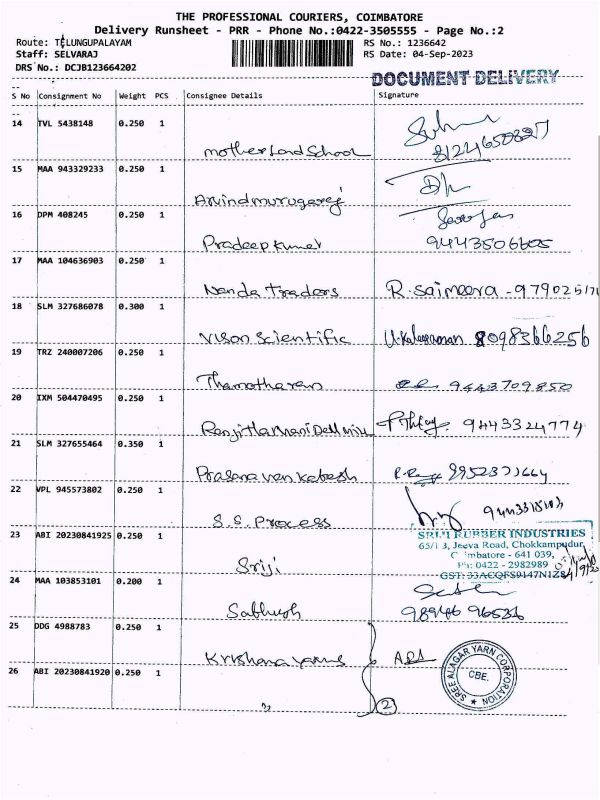 THE PROFESSIONAL COURIERS, COIMBATORE
Delivery Runsheet - PRR - Phone No.:0422-3505555 - Page No.:2
Route: TELUNGUPALAYAM RS No.: 1236642
Staff: SELVARAJ RS Date: 04-Sep-2023
DRS No.: DCJB123664202
DOCUMENT DELIVERY
S No Consignment No Weight PCS Consignee Details Signature
14 TVL 5438148 0.250 1
motherland School
15 MAA 943329233 0.250 1
Arvindmurugaraj
16 DPM 408245 0.250 1
Pradeepkumar
17 MAA 104636903 0.250 1
Nanda Traders R. Saimeera - 979025171
18 SLM 327686078 0.300 1
Vison Scientific 8098366256
19 TRZ 240007206 0.250 1
Thamotharan 9443709850
20 IXM 504470495 0.250 1
9443324774
21 SLM 327655464 0.350 1
Prasanavenkatesh
22 VPL 945573802 0.250 1
S.S. Process
23 ABI 20230841925 0.250 1
SRIJI RUBBER INDUSTRIES
65/1 3, Jeeva Road, Chokkampudur,
Coimbatore - 641 039,
Ph: 0422 - 2982989
GST: 33ACQFS9147N1Z8
Sriji
24 MAA 103853101 0.200 1
Sabhush
25 DDG 4988783 0.250 1
Krishna yarns
SREE ALAGAR YARN CORPORATION
CBE.
26 ABI 20230841920 0.250 1
2